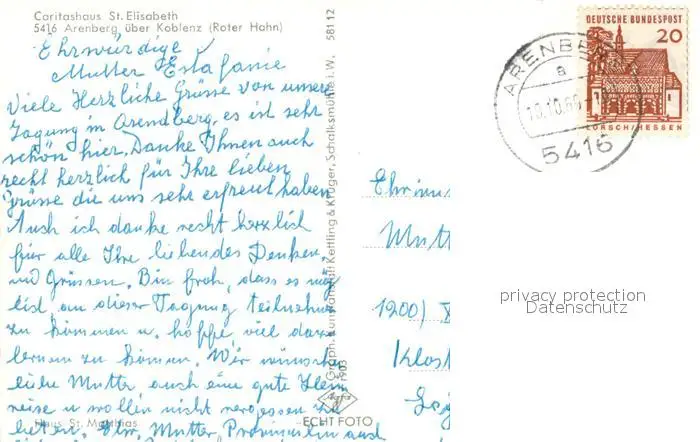 Caritashaus St. Elisabeth
5416 Arenberg über Koblenz (Roter Hahn)
Ehrwürdige
Mutter Estafanie
Viele Herzliche Grüsse von unsere
Tagung in Arendberg, es ist sehr
schön hier. Danke Ihnen auch
recht herzlich für Ihre lieben
Grüsse die uns sehr erfreut haben
Auch ich danke recht herzlich
für alle Ihre liebendes Denken,
und Grüssen. Bin froh, dass es mög
list, an dieser Tagung teilnehm
zu können u. hoffe, viel daz
lernen zu können. Wir wünsche
liebe Mutter auch eine gute Heim
reise u wollen nicht vergessen zu
beten. Ehrw. Mutter Provinzialin auch
Haus St. Matthias
581 12
Graph. Kunstanstalt Kettling & Krüger, Schalksmühle i. W.
Agfa
ECHT FOTO
DEUTSCHE BUNDESPOST
20
LORSCH/HESSEN
ARENBERG
a
10.10.66
5416
Mutt
1200)
Klost
privacy protection
Datenschutz